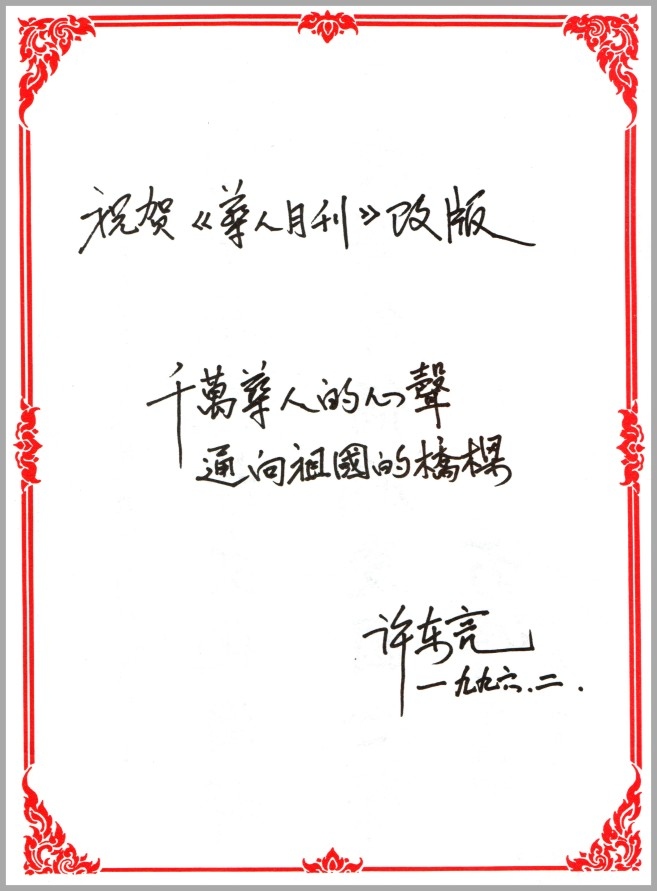 祝贺《華人月刊》改版
千萬華人的心聲
通向祖國的橋樑
许东亮
一九九六.二.